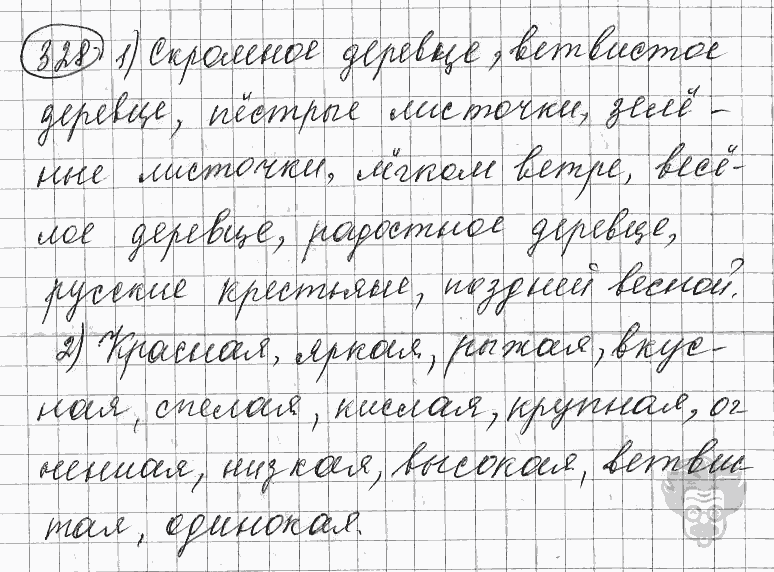 328. 1) Скромное деревце, ветвистое
деревце, пёстрые листочки, зелё-
ные листочки, лёгком ветре, весё-
лое деревце, радостное деревце,
русские крестьяне, поздней весной.
2) Красная, яркая, рыжая, вкус-
ная, спелая, кислая, крупная, ог
ненная, низкая, высокая, ветвис
тая, одинокая.